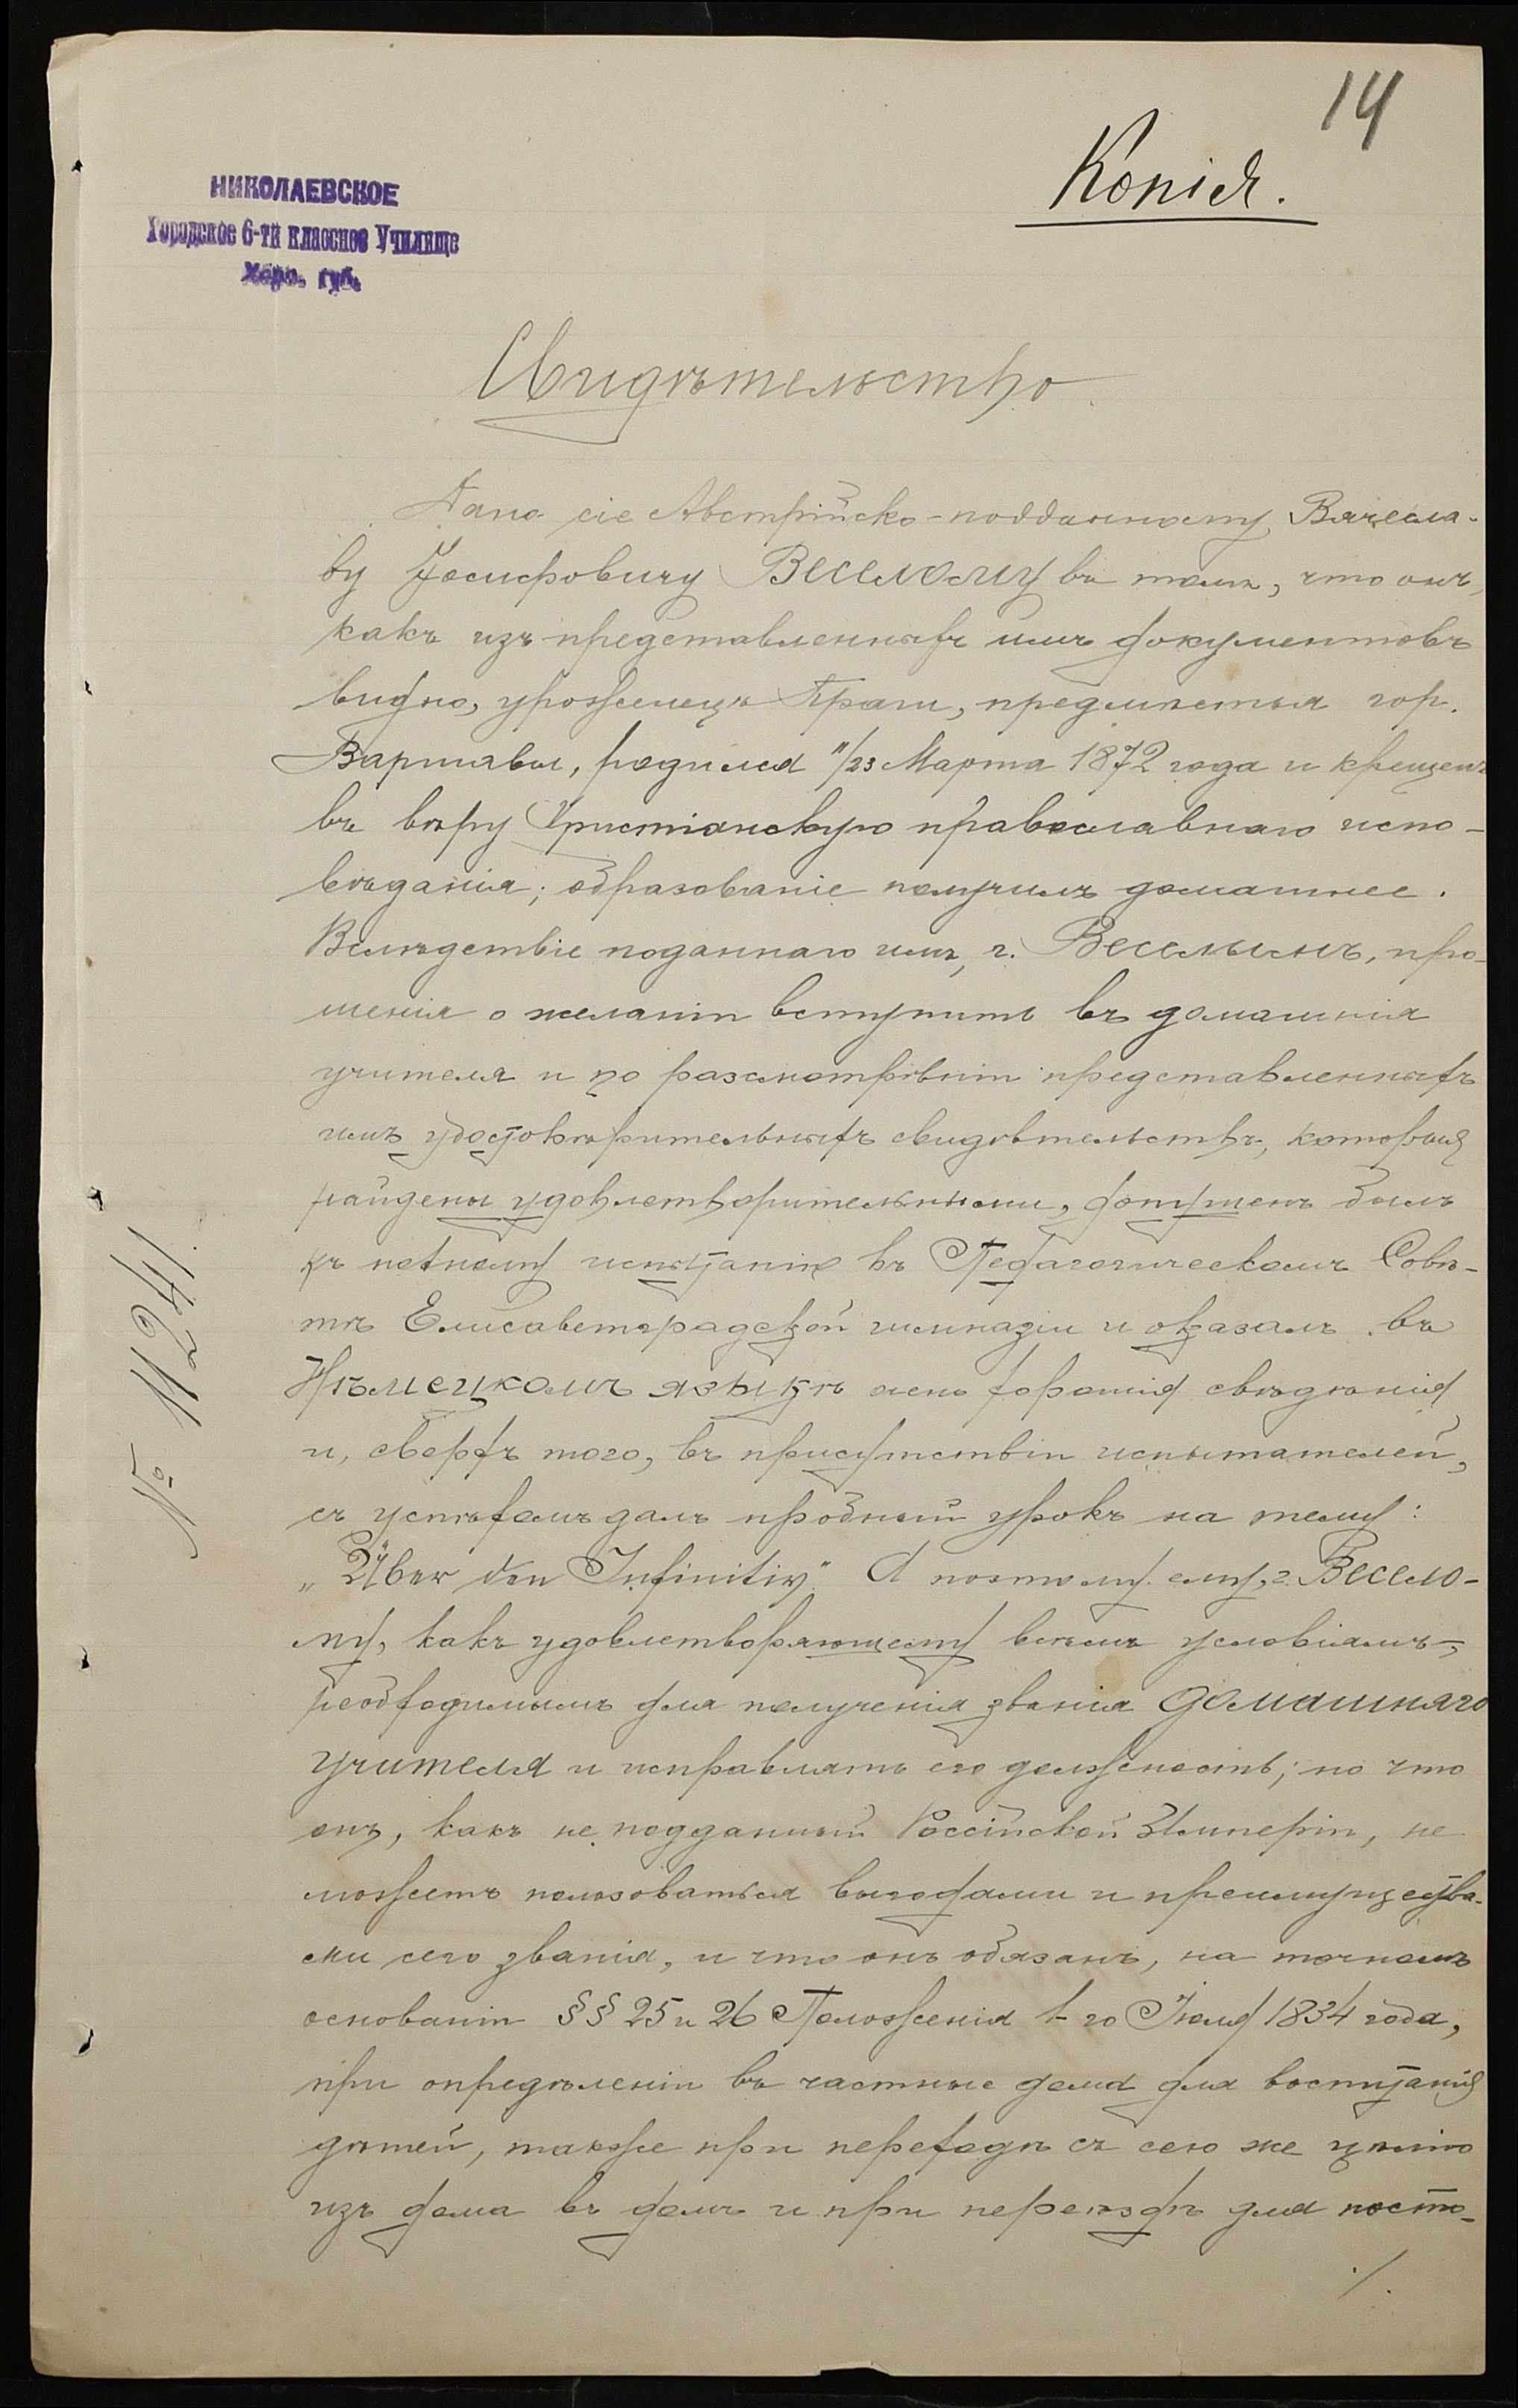 14
Копія.
НИКОЛАЕВСКОЕ
Городское 6-ти классное Училище
Херс. губ.
Свидѣтельство.
Дано сіе Австрійско-подданному Вячесла-
ву Іосифовичу Веселому въ томъ, что онъ,
какъ изъ представленныхъ имъ документовъ
видно, уроженецъ Праги, предмѣстья гор.
Варшавы, родился 11/23 Марта 1872 года и крещенъ
въ вѣру Христіанскую православнаго испо-
вѣданія; образованіе получилъ домашнее.
Вслѣдствіе поданнаго имъ, г. Веселымъ, про-
шенія о желаніи вступить въ домашнія
учителя и по разсмотрѣніи представленныхъ
имъ удостовѣрительныхъ свидѣтельствъ, которыя
найдены удовлетворительными, допущенъ былъ
къ испытанію въ Педагогическомъ Совѣ-
тѣ Елисаветградской гимназіи и оказалъ въ
Нѣмецкомъ языкѣ очень хорошія свѣдѣнія
и, сверхъ того, въ присутствіи испытателей,
съ успѣхомъ далъ пробный урокъ на тему:
„Über den Infinitiv". А поэтому ему, г. Весело-
му, какъ удовлетворяющему всѣмъ условіямъ,
необходимымъ для полученія званія домашняго
учителя и исправлять его должность; но что
онъ, какъ не подданный Россійской Имперіи, не
можетъ пользоваться выгодами и преимущества-
ми сего званія, и что онъ обязанъ, на точномъ
основаніи §§ 25 и 26 Положенія 1-го Іюля 1834 года,
при опредѣленіи въ частные дома для воспитанія
дѣтей, также при переходѣ съ сею же цѣлію
изъ дома въ домъ и при переѣздѣ для посто-
./.
№ 11241.